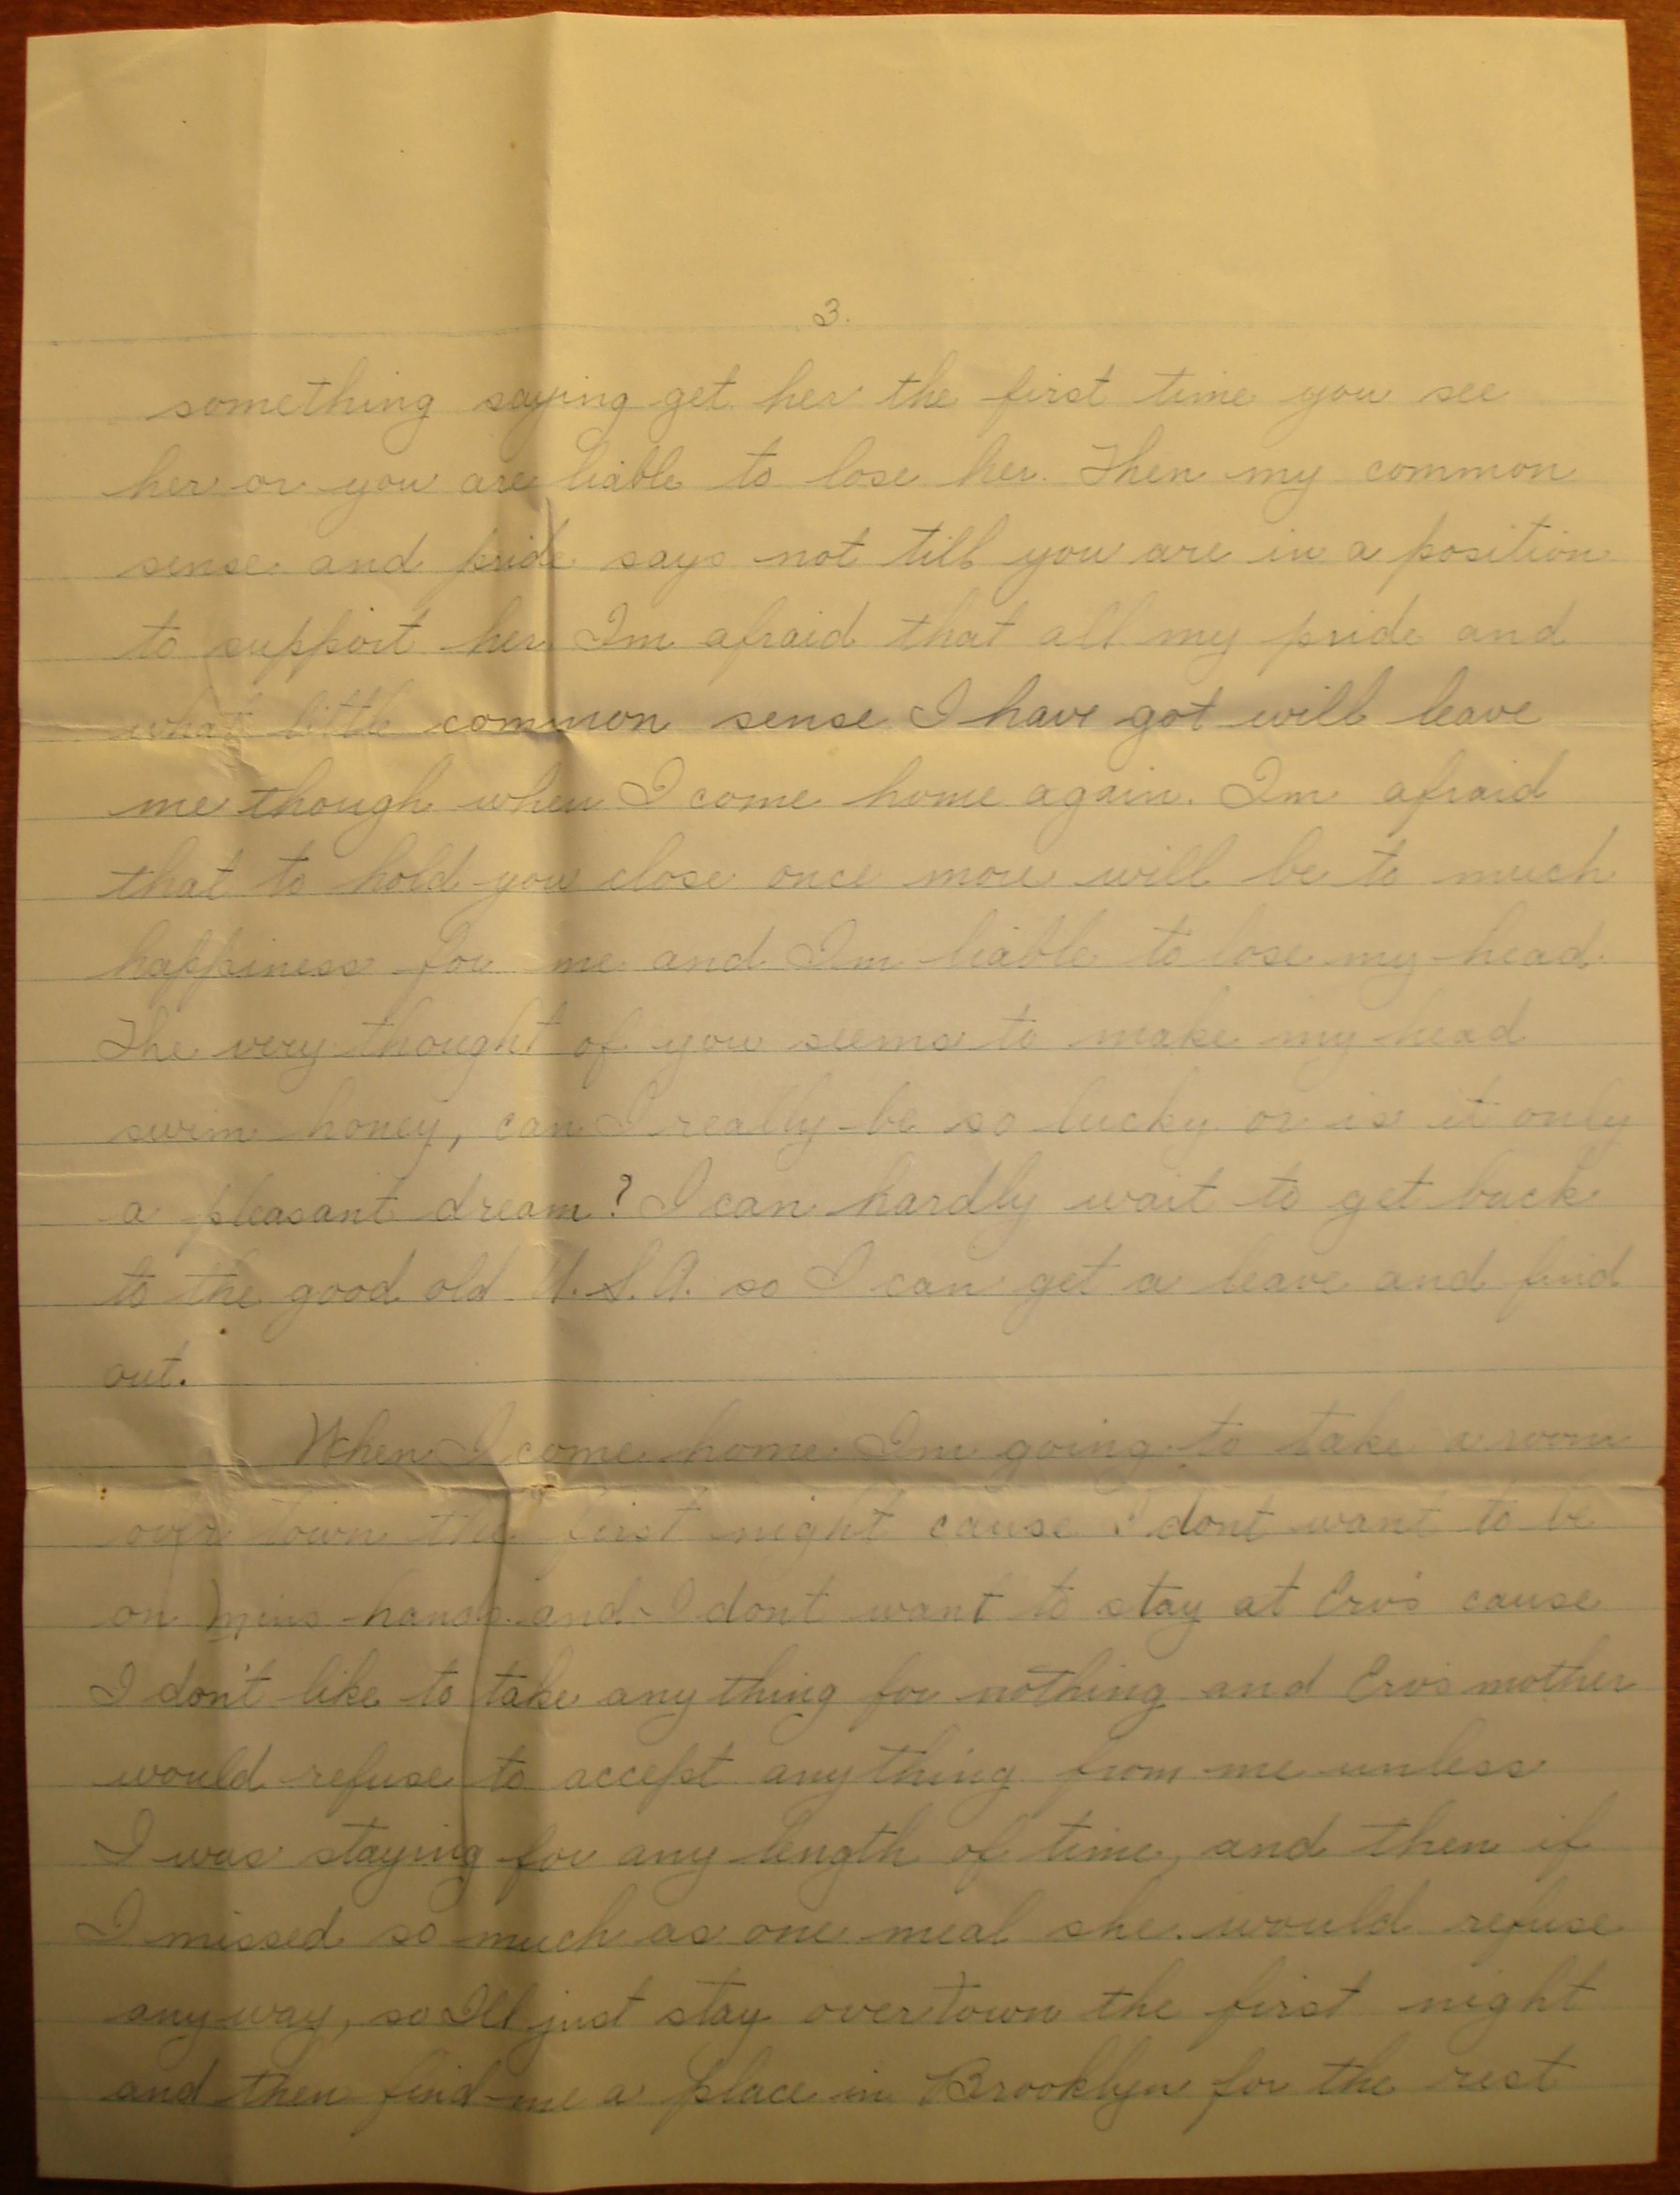 3.
something saying get her the first time you see
her or you are liable to lose her. Then my common
sense and pride says not till you are in a position
to support her. Im afraid that all my pride and
what little common sense I have got will leave
me though when I come home again. Im afraid
that to hold you close once more will be to much
happiness for me and Im liable to lose my head.
The very thought of you seems to make my head
swim honey, can I really be so lucky or is it only
a pleasant dream? I can hardly wait to get back
to the good old U.S.A. so I can get a leave and find
out.
When I come home Im going to take a room
over town the first night cause I dont want to be
on Mins hands and I dont want to stay at Erv's cause
I don't like to take any thing for nothing and Erv's mother
would refuse to accept any thing from me unless
I was staying for any length of time, and then if
I missed so much as one meal she would refuse
any way, so Ill just stay overtown the first night
and then find me a place in Brooklyn for the rest